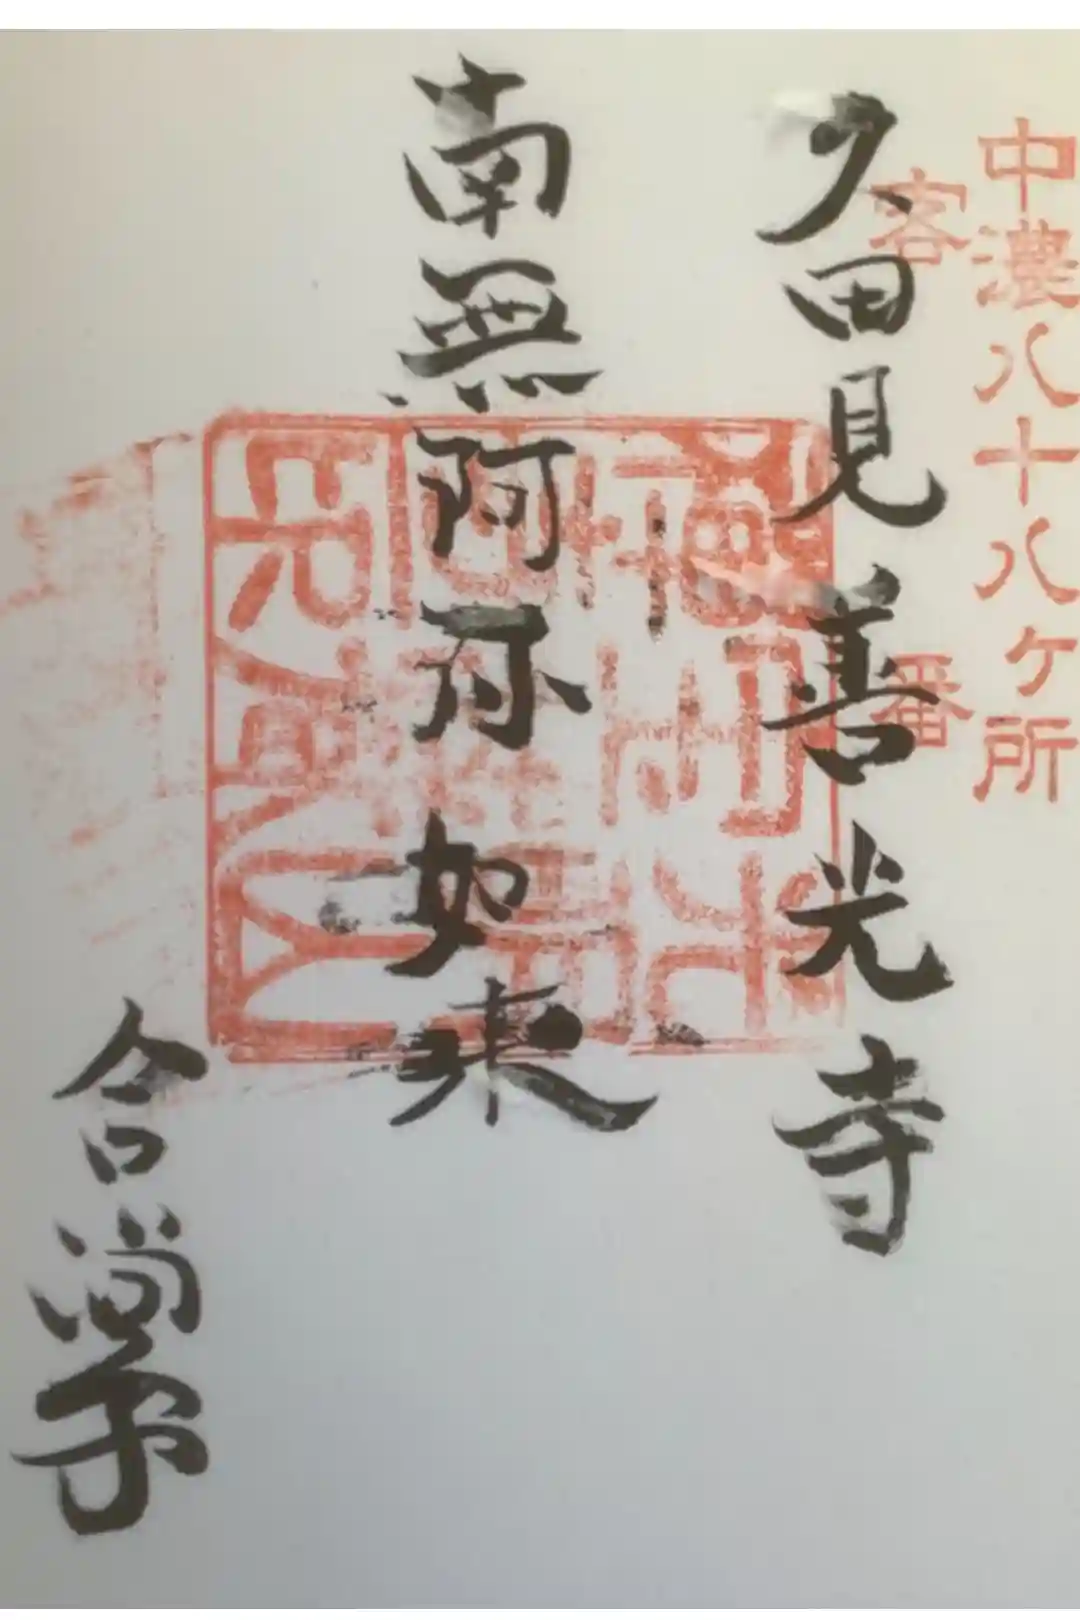 中濃八十八ケ所
客番
久田見善光寺
南無阿弥如来
合掌